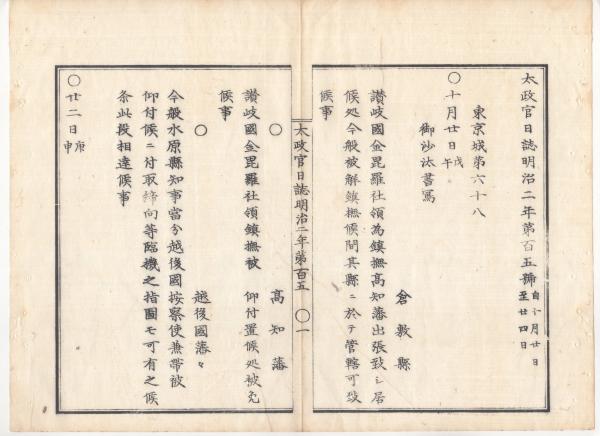 太政官日誌明治二年第百五號
自十月廿日
至廿四日
東京城第六十八
○十月廿日戊午
御沙汰書寫
倉敷縣
讃岐國金毘羅社領為鎮撫高知藩出張致シ居
候処今般被解鎮撫候間其縣ニ於テ管轄可致
候事
太政官日誌明治二年第百五
○一
○
高知藩
讃岐國金毘羅社領鎮撫被 仰付置候処被免
候事
○
越後國藩々
今般水原縣知事當分越後國按察使兼帯被
仰付候ニ付取締向等臨機之指圖モ可有之候
条此段相達候事
○廿二日庚申